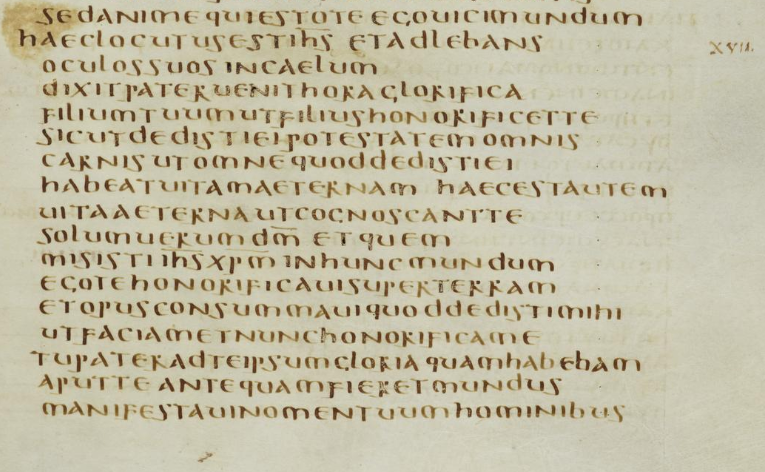 SEDANIMEQUIESTOTE EGOUICIMUNDUM
HAECLOCUTUSESTIHS ETADLEBANS XVII.
OCULOSSUOS INCAELUM
DIXITPATERUENITHORAGLORIFICA
FILIUMTUUMUTFILIUSHONORIFICETTE
SICUTDEDISTIEIPOTESTATEMOMNIS
CARNISUTOMNEQUODDEDISTIEI
HABEATUITAMAETERNAM HAECESTAUTEM
UITAAETERNAUTCOGNOSCANTTE
SOLUMUERUMDM̅ ETQUEM
MISISTIIHSXPM̅ INHUNCMUNDUM
EGOTEHONORIFICAUISUPERTERRAM
ETOPUSCONSUMMAUIQUODDEDISTIMIHI
UTFACIAMETNUNCHONORIFICAME
TUPATERADTEIPSUMGLORIAQUAMHABEBAM
APUTTE ANTEQUAMFIERETMUNDUS
MANIFESTAUINOMENTUUMHOMINIBUS